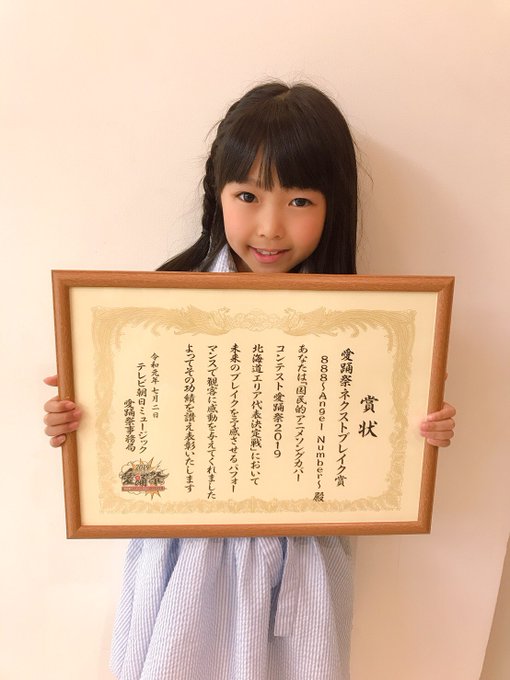 賞状
愛踊祭ネクストブレイク賞
888〜Angel Number〜 殿
あなたは「国民的アニメソングカバー
コンテスト愛踊祭2019
北海道エリア代表決定戦」において
未来のブレイクを予感させるパフォー
マンスで観客に感動を与えてくれました
よってその功績を讃え表彰いたします
令和元年七月二日
テレビ朝日ミュージック
愛踊祭事務局
2019
愛踊祭